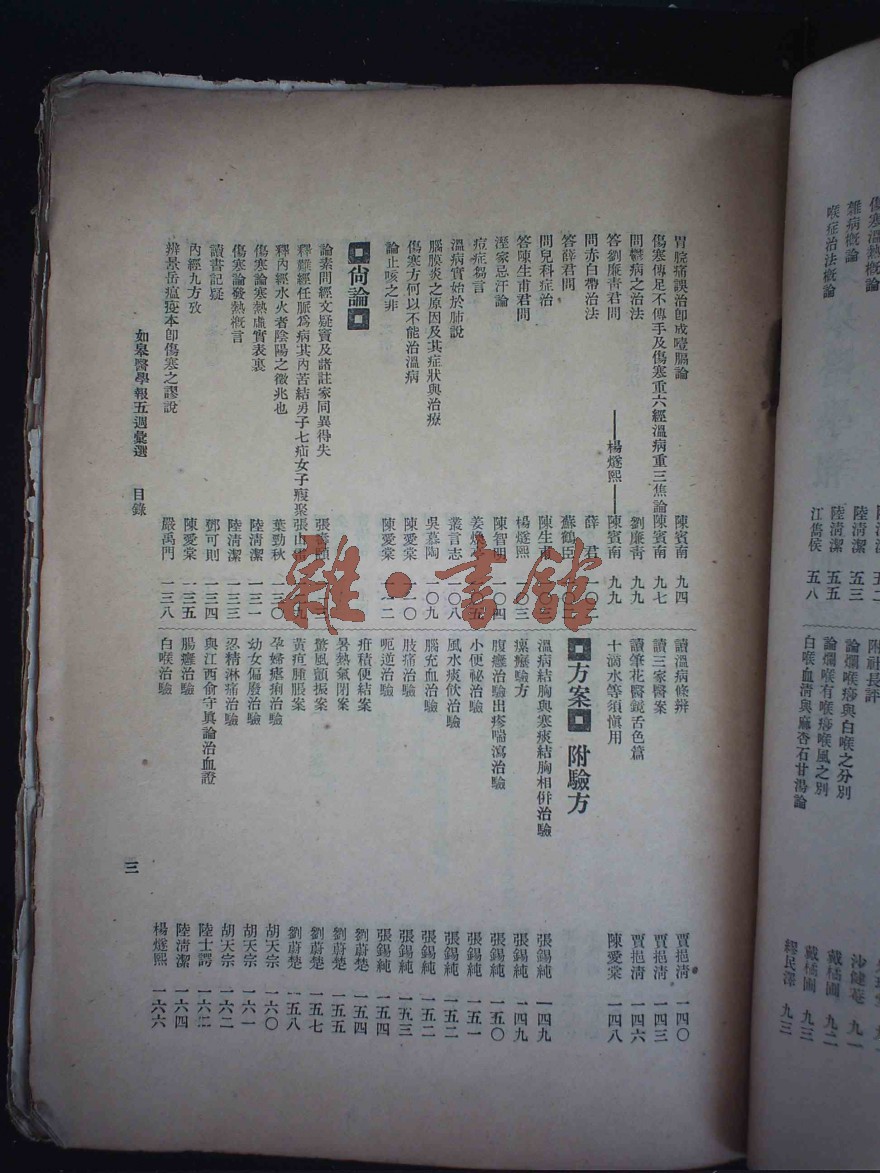 傷寒溫熱概論
雜病概論
喉症治法概論
陸清潔 五三
陸清潔 五五
江雋侯 五八
附社長評
論爛喉痧與白喉之分別
論爛喉有喉痧喉風之別
白喉血清與麻杏石甘湯論
沙健菴 九一
戴橘圃 九二
戴橘圃 九三
繆民澤 九三
胃脘痛誤治卽成噎膈論 陳賓南 九四
傷寒傳足不傳手及傷寒重六經溫病重三焦論 陳賓南 九七
問鬱症之治法 劉廉靑 九九
答劉廉靑君問 ——楊燧熙—— 陳賓南 九九
問赤白帶治法 薛 君
答薛君問 蘇鶴臣
問兒科症治 陳生甫
答陳生甫君問 楊燧熙
溼家忌汗論 陳智明
痘症芻言
溫病實始於肺說 叢言志 一〇八
腦膜炎之原因及其症狀與治療 吳慕陶 一〇九
傷寒方何以不能治溫病 陳愛棠 一一〇
論止咳之非 陳愛棠 一一二
尙論
論素問經文疑竇及諸註家同異得失
釋難經任脈爲病其內苦結男子七疝女子瘕聚
釋內經水火者陰陽之徵兆也 葉勁秋 一三〇
傷寒論寒熱虛實表裏 陸淸潔 一三一
傷寒論發熱概言 陸淸潔 一三三
讀書記疑 鄧可則 一三四
內經九方攷 陳愛棠 一三五
辨景岳瘟疫本卽傷寒之謬說 嚴禹門 一三八
讀溫病條辨 賈挹淸 一四〇
讀三家醫案 賈挹淸 一四三
讀筆花醫鏡舌色篇 賈挹淸 一四六
十滴水等須愼用 陳愛棠 一四八
方案 附驗方
溫病結胸與寒痰結胸相併治驗 張錫純 一四九
瘰癧驗方 張錫純 一四九
腹癰治驗出疹喘瀉治驗 張錫純 一五〇
小便祕治驗 張錫純 一五一
風水痰飮治驗 張錫純 一五二
腦充血治驗 張錫純 一五二
肢痛治驗 張錫純 一五三
呃逆治驗 張錫純 一五四
疳積便結案 劉蔚楚 一五四
暑熱氣閉案 劉蔚楚 一五五
驚風顫振案 劉蔚楚 一五七
黃疸腫脹案 劉蔚楚 一五八
孕婦瘧痢治驗 胡天宗 一六〇
幼女偏廢治驗 胡天宗 一六一
忍精淋痛治驗 胡天宗 一六二
與江西兪守眞論治血證 陸士諤 一六二
腸癰治驗 陸淸潔 一六四
白喉治驗 楊燧熙 一六六
如皋醫學報五週彙選 目錄
三
雜·書館